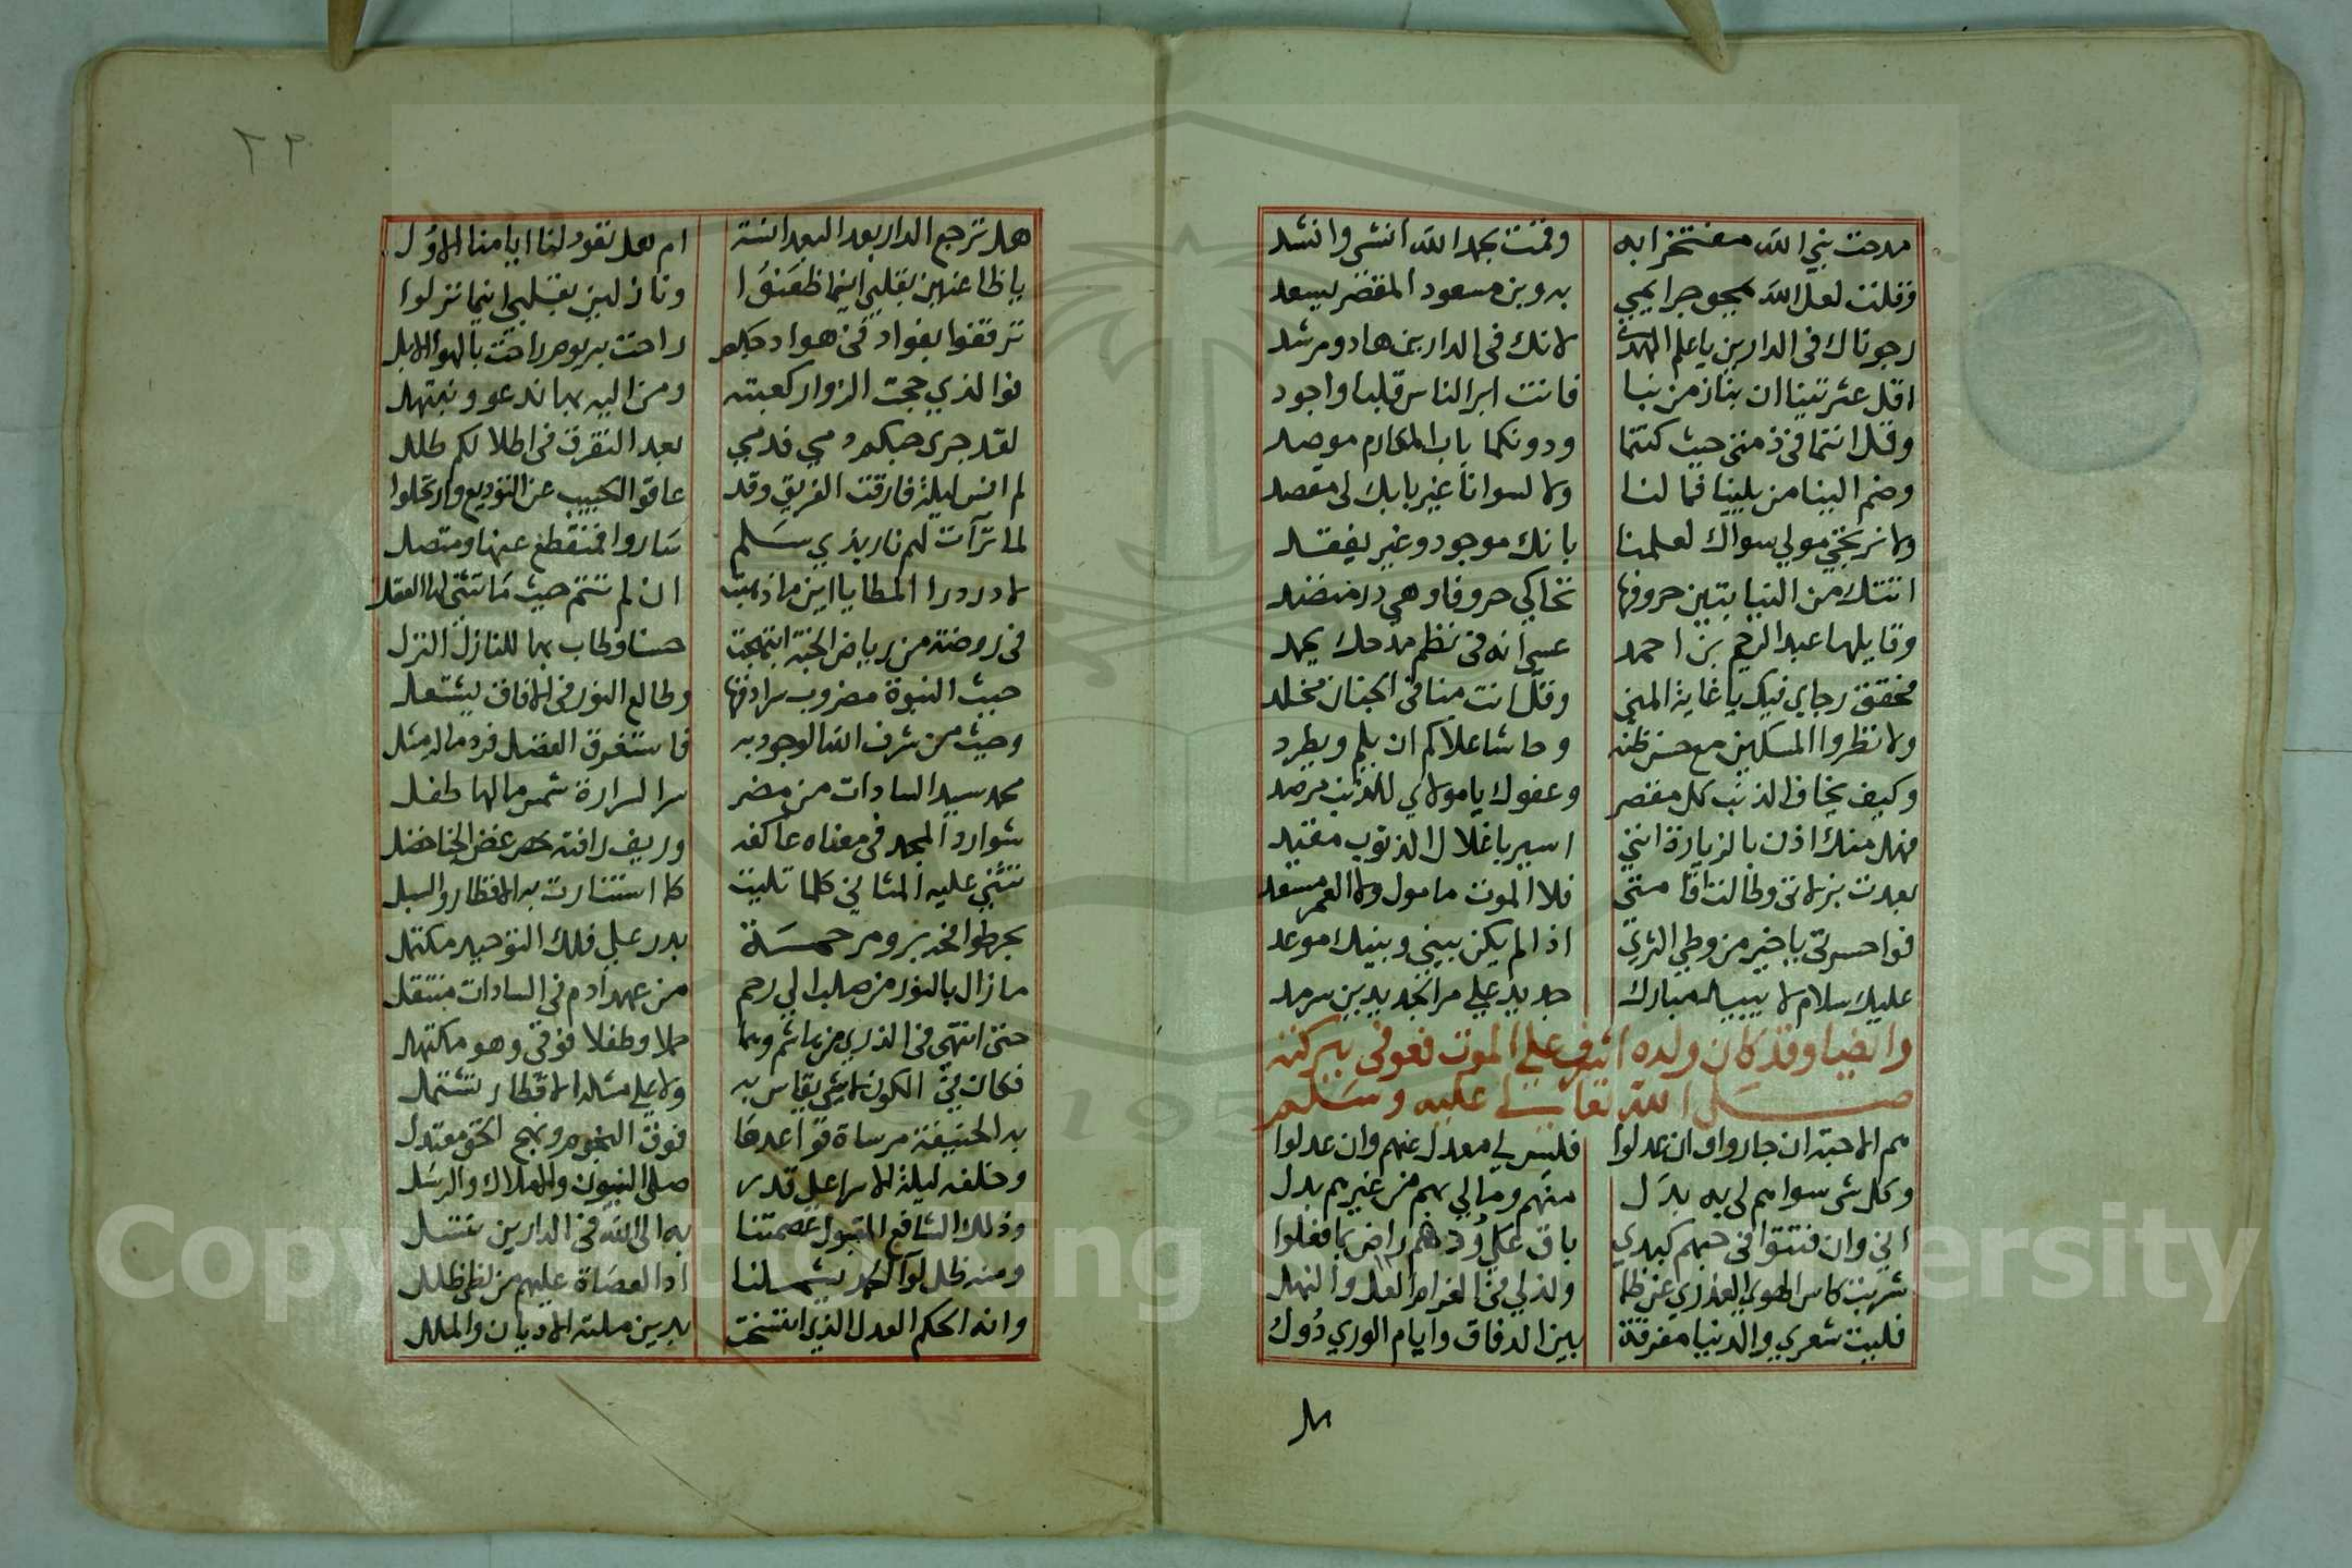 مدحت نبي الله مفتخرا به وقمت بحمد الله انشي وانشد
وقلت لعل الله يمحو جرايمي به وبن مسعود المقصر يسعد
رجوناك في الدارين يا علم الهدى لانك في الدارين هاد ومرشد
اقل عثرتينا ان بنا زمن نبا فانت ابر الناس قلبا واجود
وقل انتما في ذمتي حيث كنتما ودونكما باب المكارم موصد
وضم الينا من يلينا فما لنا ولا لسوانا غير بابك لي مقصد
ولا نرتجي مولي سواك لعلمنا بانك موجود وغير يفقد
اتتك من النيابتين حروفها تحاكي حروفا وهي در منضد
وقايلها عبد الرحيم بن احمد عسى انه في نظم مدحك يحمد
فحقق رجاي فيك يا غاية المني وقل انت منا في الجنان مخلد
ولا تطردوا المسكين مع حسن ظنه وحاشا علاكم ان يلم ويطرد
وكيف يخاف الذنب كل مقصر وعفوك يا مولاي للذنب مرصد
فهل منك اذن بالزيارة انني اسير باغلال الذنوب مقيد
بعدت بزلاتي وطالت اقامتي فلا الموت مامول ولا العمر مسعد
فوا حسرتي يا خير من وطي الثري اذا لم يكن بيني وبينك موعد
عليك سلام لا يبيد مبارك جديد علي مر الجديدين سرمد
وايضا وقد كان ولده اشرف علي الموت فعوفي ببركته
صلى الله تعالى عليه وسلم
هم الاحبة ان جاروا وان عدلوا فليس لي معدل عنهم وان عدلوا
وكل شي سواهم لي به بدل منهم ومالي بهم من غيرهم بدل
اني وان فتتوا في حبهم كبدي باق على ودهم راض بما فعلوا
شربت كاس الهوي العذري عن ظما ولذ لي في الغرام العل والنهل
فليت شعري والدنيا مفرقة بين الرفاق وايام الوري دول
هل
٢٢
هل ترجع الدار بعد البعد انسة ام هل تعود لنا ايامنا الاول
يا ظاعنين بقلبي اينما ظعنوا ونازلين بقلبي اينما نزلوا
ترفقوا بفواد في هوادجكم راحت به يوم راحت بالهوا الابل
فوا الذي حجت الزوار كعبته ومن اليه بها ندعو ونبتهل
لقد جري حبكم مجري دمي فدمي بعد التفرق في اطلالكم طلل
لم انس ليلة فارقت الفريق وقد عاقوا الحبيب عن التوديع وارتحلوا
لما ترآت لهم نار بذي سلم ساروا فمنقطع عنها ومتصل
لا در در المطايا اين ما ذهبت ان لم تنخ حيث ما تثني لها العقل
في روضة من رياض الجنة ابتهجت حسنا وطاب بها للنازل النزل
حيث النبوة مضروب سرادقها وطالع النور في الافاق يشتعل
وحيث من شرف الله الوجود به فاستغرق الفضل فرد ماله مثل
محمد سيد السادات من مضر سر السرارة شمس مالها طفل
شوارد المجد في مغناه عاكفة وريف رافته غض الجنا خضل
تثني عليه المثاني كلما تليت كما استنارت به الاقطار والسبل
بحر طوامخه بر ومرحمة بدر علي فلك التوحيد مكتمل
ما زال بالنور من صلب الي رحم من عهد ادم في السادات منتقل
حتى انتهى في الذري من هاشم وسما حملا وطفلا فوفي وهو مكتهل
فكان في الكون لا شي يقاس به ولا علي مثله الاقطار تشتمل
به الحنيفة مرساة قواعدها فوق النجوم ونهج الحق معتدل
وخلفه ليلة الاسرا علي قدر صلى النبيون والاملاك والرسل
وذلك الشافع المقبول عصمتنا به الى الله في الدارين نبتهل
ومنه ظل لوآ الحمد يشملنا اذا العصاة عليهم من لظى ظلل
وانه الحكم العدل الذي انتسخت بدين ملته الاديان والملل
Copyright © King Saud University
195